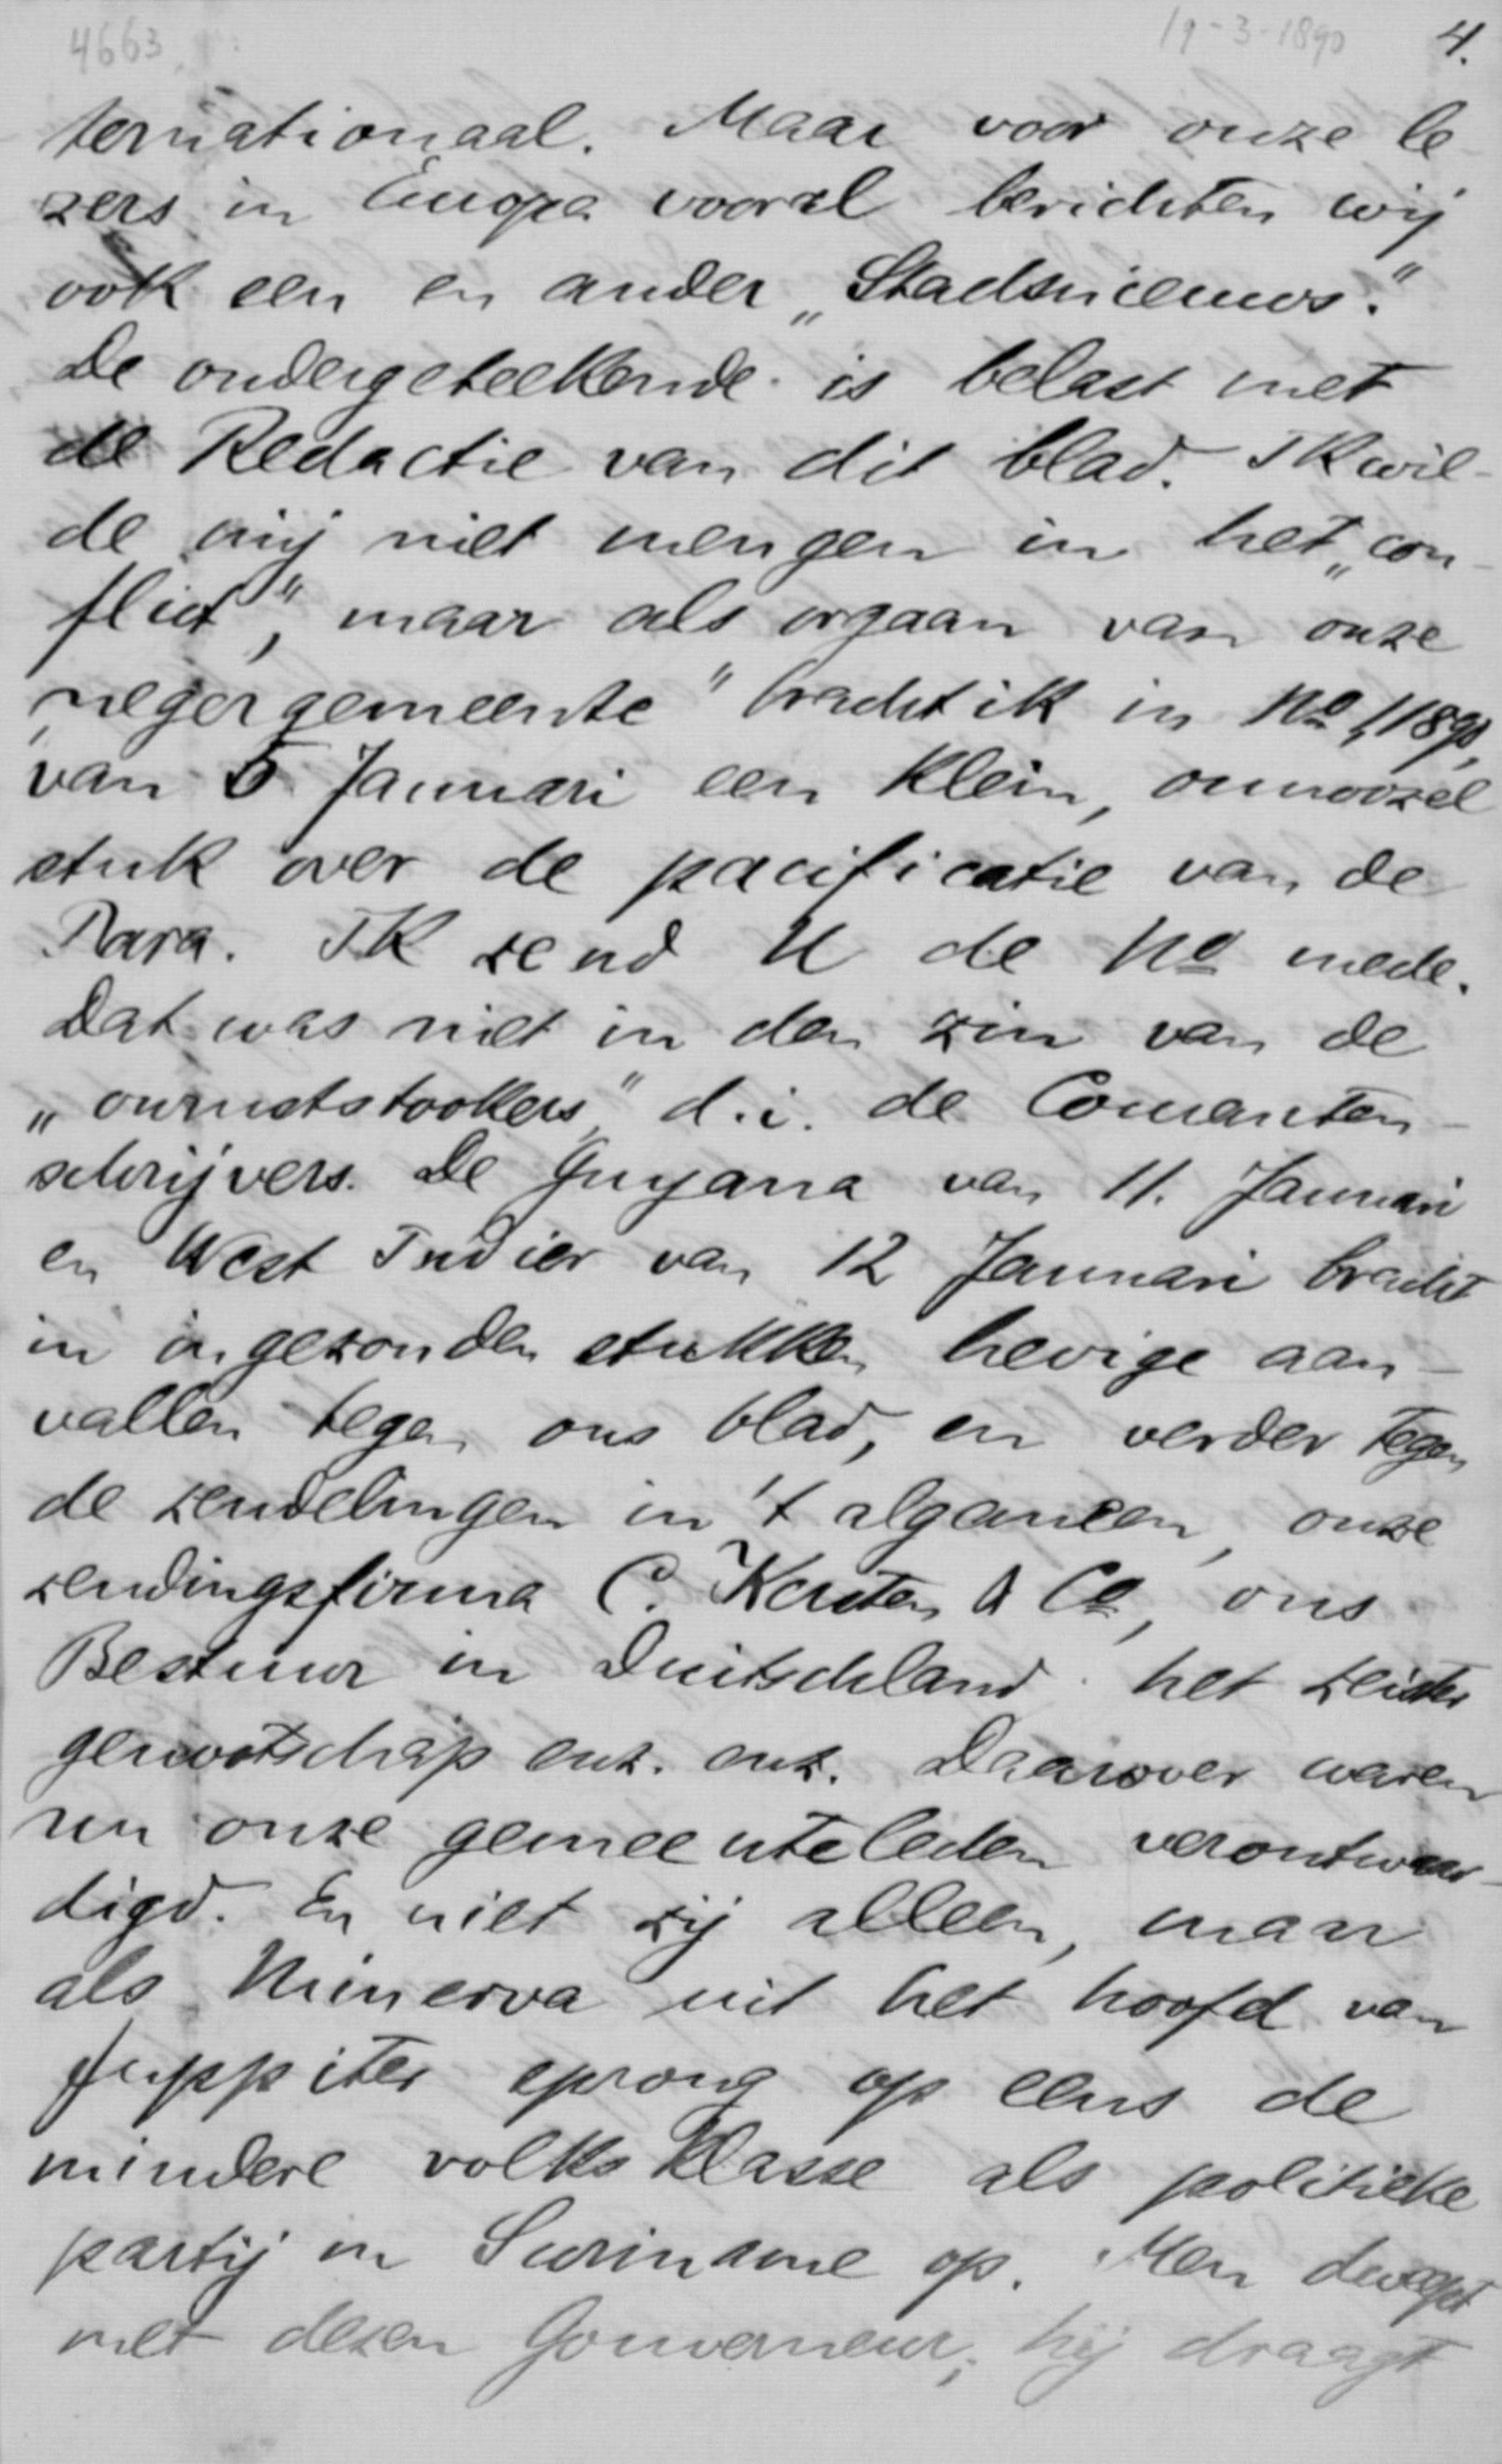 4663. 19-3-1890 4.
ternationaal. Maar voor onze le
zers in Europa vooral berichten wij
ook een en ander „Stadsnieuws."
De ondergeteekende is belast met
de Redactie van dit blad. Ik wil-
de mij niet mengen in het „con-
flict", maar als orgaan van onze
„negergemeente" bracht ik in No 1, 1890,
van 5 Januari een klein, onnoozel
stuk over de pacificatie van de
Para. Ik zend U de No mede.
Dat was niet in den zin van de
„onruststookers" d.i. de Couranten-
schrijvers. De Guyana van 11. Januari
en West Indier van 12 Januari bracht
in ingezonden stukken hevige aan-
vallen tegen ons blad, en verder tegen
de zendelingen in 't algemeen, onze
zendingsfirma C. Kersten & Co, ons
Bestuur in Duitschland. het zeister
genootschap enz. enz. Daarover waren
nu onze gemeenteleden verontwaar-
digd. En niet zij alleen, maar
als Minerva uit het hoofd van
Juppiter sprong op eens de
mindere volksklasse als politieke
partij in Suriname op. Men dweept
met dezen Gouverneur; hij draagt